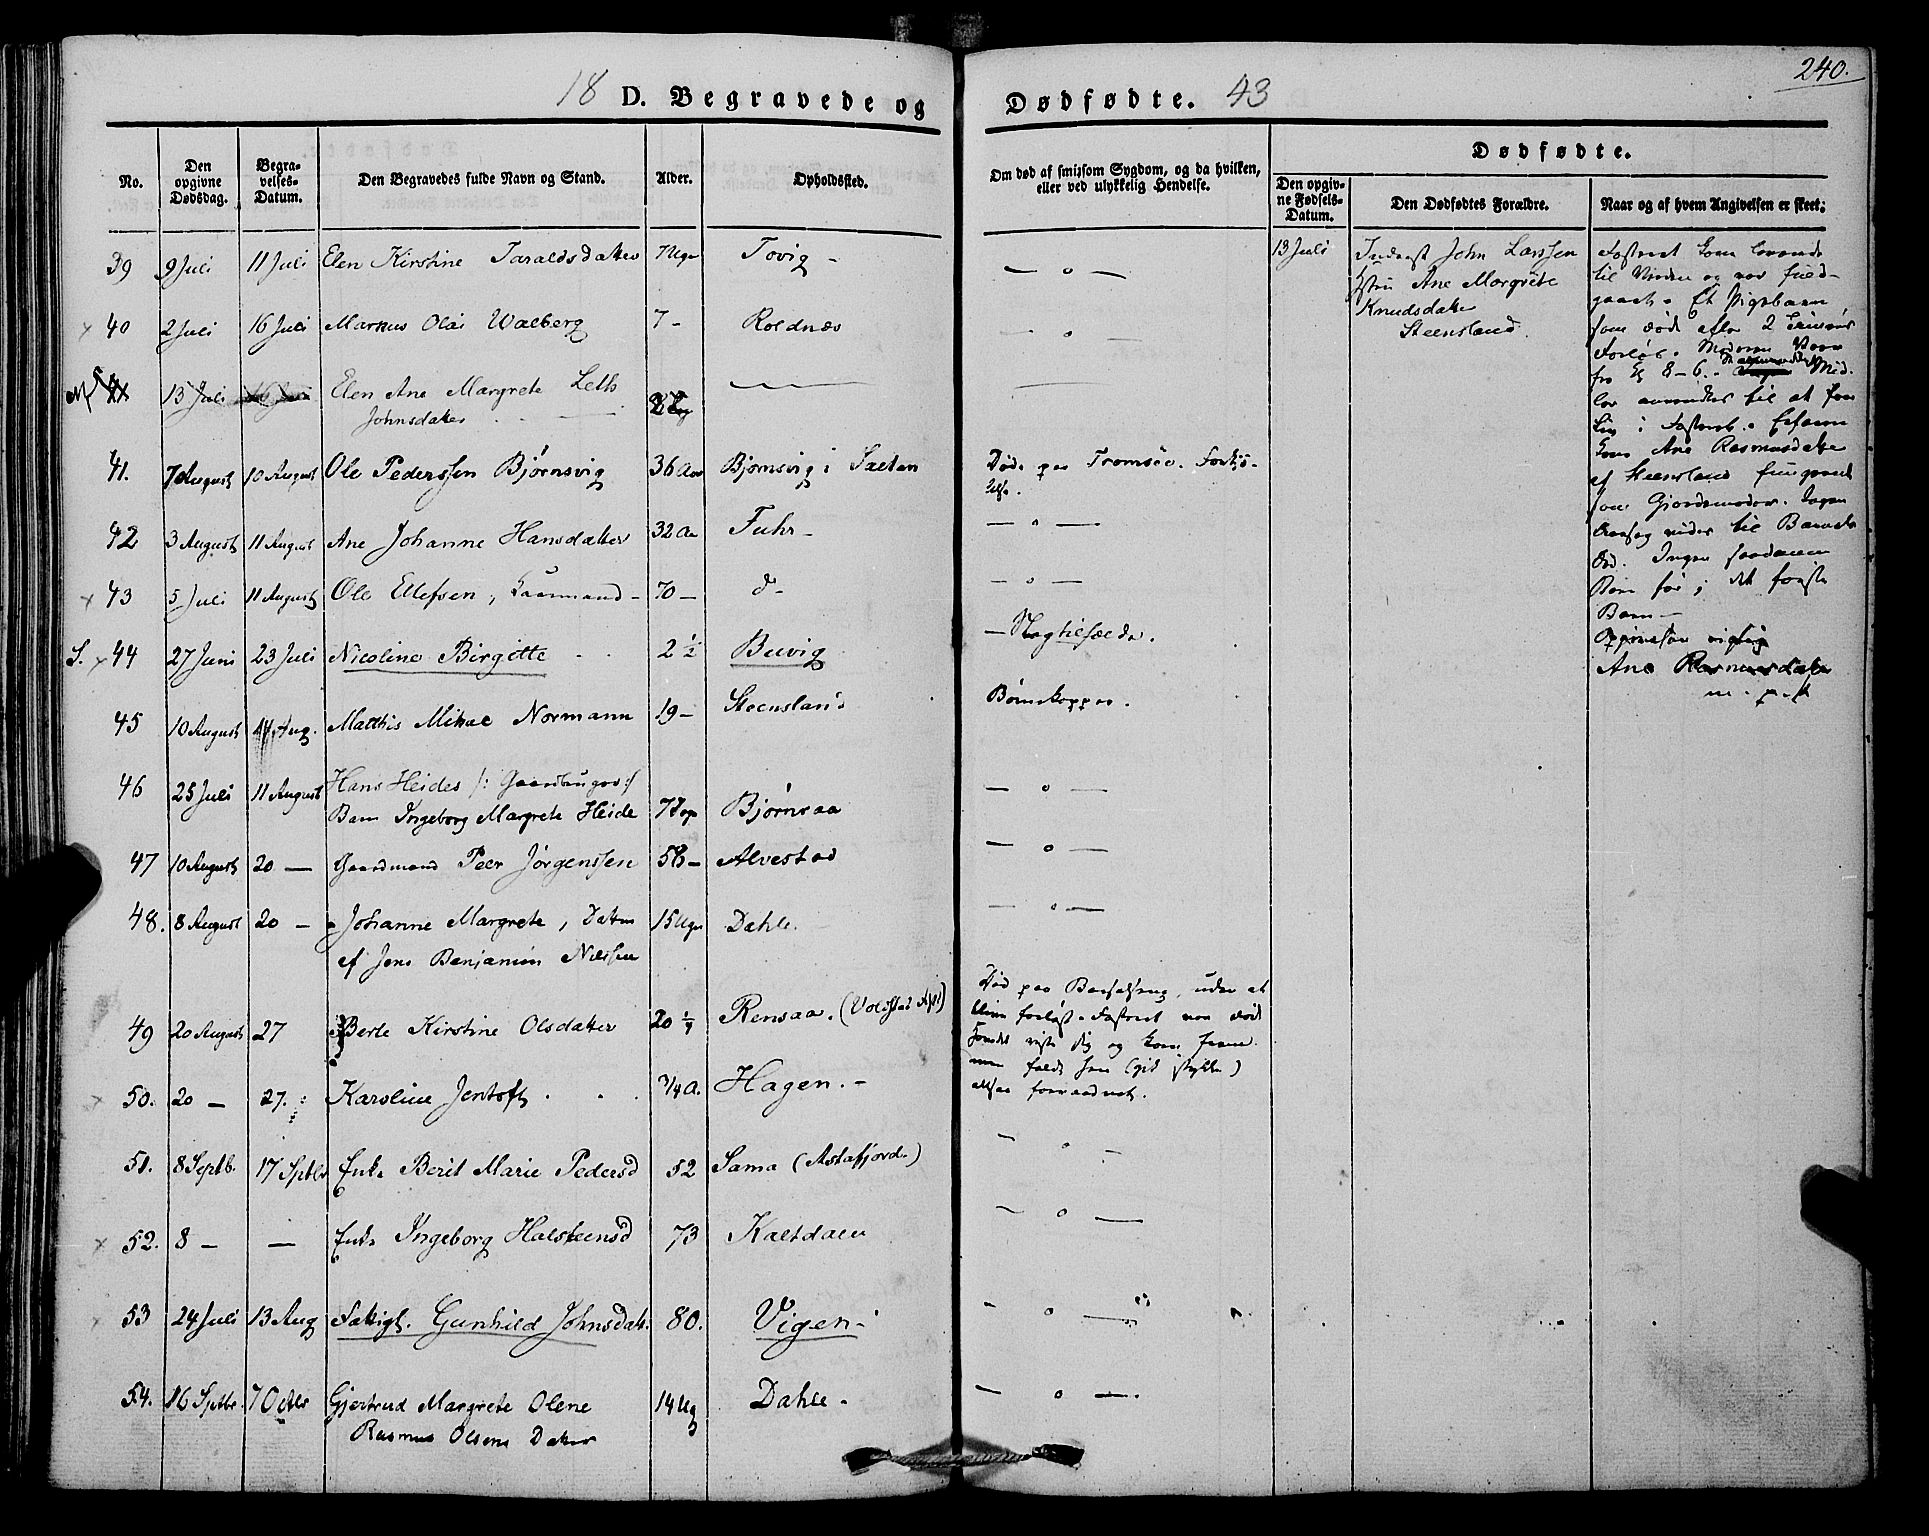 240.
18 D. Begravede og Dødfødte. 43
No.
Den opgivne Dødsdag.
Begravelses-Datum.
Den Begravedes fulde Navn og Stand.
Alder.
Opholdssted.
Om død af smitsom Sygdom, og da hvilken,
eller ved ulykkelig Hendelse.
Dødfødte.
Den opgivne Fødsels-Datum.
Den Dødfødtes Forældre.
Naar og af hvem Angivelsen er skeet.
39 9 Juli 11 Juli Elen Kirstine Taraldsdatter 7 Uger Tovig - — o —
40 2 Juli 16 Juli Markus Olai Walberg 7 - Roldnæs - o -
13 Juli Elen Ane Margrete Leth
Johnsdatter
41. 7 August 10 August Ole Pederssen Bjørnsvig 36 Aar Bjørnsvig i Salten Døde paa Tromsøe.
42 3 August 11 August Ane Johanne Hansdatter 32 Aa Fuhr - — o —
43 5 Juli 11 August Ole Ellefsen, Kaarmand - 70 - d - - o —
S. 44 27 Juni 23 Juli Nicoline Birgitte 2 ½ Buvig — Slagtilfælde.
45 10 August 14 Aug. Matthis Mikal Normann 19 - Steensland Børnekopper.
46 25 Juli 11 August Hans Heides /: Gaardbruger :/
Barn Ingeborg Margrete Heide Bjørnraa — o —
47 10 August 20 — Gaardmand Peer Jørgenssen 58 - Alvestad — o —
48. 8 August 20 — Johanne Margrete, Datter 15 Uger Dahle. — o —
af Jens Benjamin Nilssen
49 20 August 27 Berte Kirstine Olsdatter 20 ¼ Rensaa.
Død paa Barselseng, uden at
blive forløst. Fosteret var død
50. 20 — 27. Karoline Jentoft ¾ A. Hagen. -
51. 8 Septb. 17 Sptbr Enke Berit Marie Pedersd 52 Sama (Astafjord.) - o -
52. 8 — — Enke Ingeborg Halsteensd 73 Kaltdalen - o —
53 24 Juli 13 Aug Fattigl. Gunhild Johnsdatt. 80. Vigen - - o —
54. 16 Sptbr. 7 Octbr Gjertrud Margrete Olene 14 Ug Dahle - — o —.
Rasmus Olsens Datter
13 Juli
Inderst John Larssen
Hstru Ane Margrete
Knudsdatter
Steensland
Fosteret kom levende
til Verden og var fuld-
gaaet. Et Pigebarn
som døde efter 2 Timers
Forløb. Moderen
fra Kl 8 - 6. Mid-
ler anvendtes til at faae
Liv i Fosteret. Erfarne
Kone Ane Rasmusdatter
af Steensland fungerede
som Gjordemoder. Ingen
Aarsag vides til Barnets
Død. Ingen saadanne
Børn før; det første
Barn —
rigtig
Ane Rasmusdatter
m. p. P